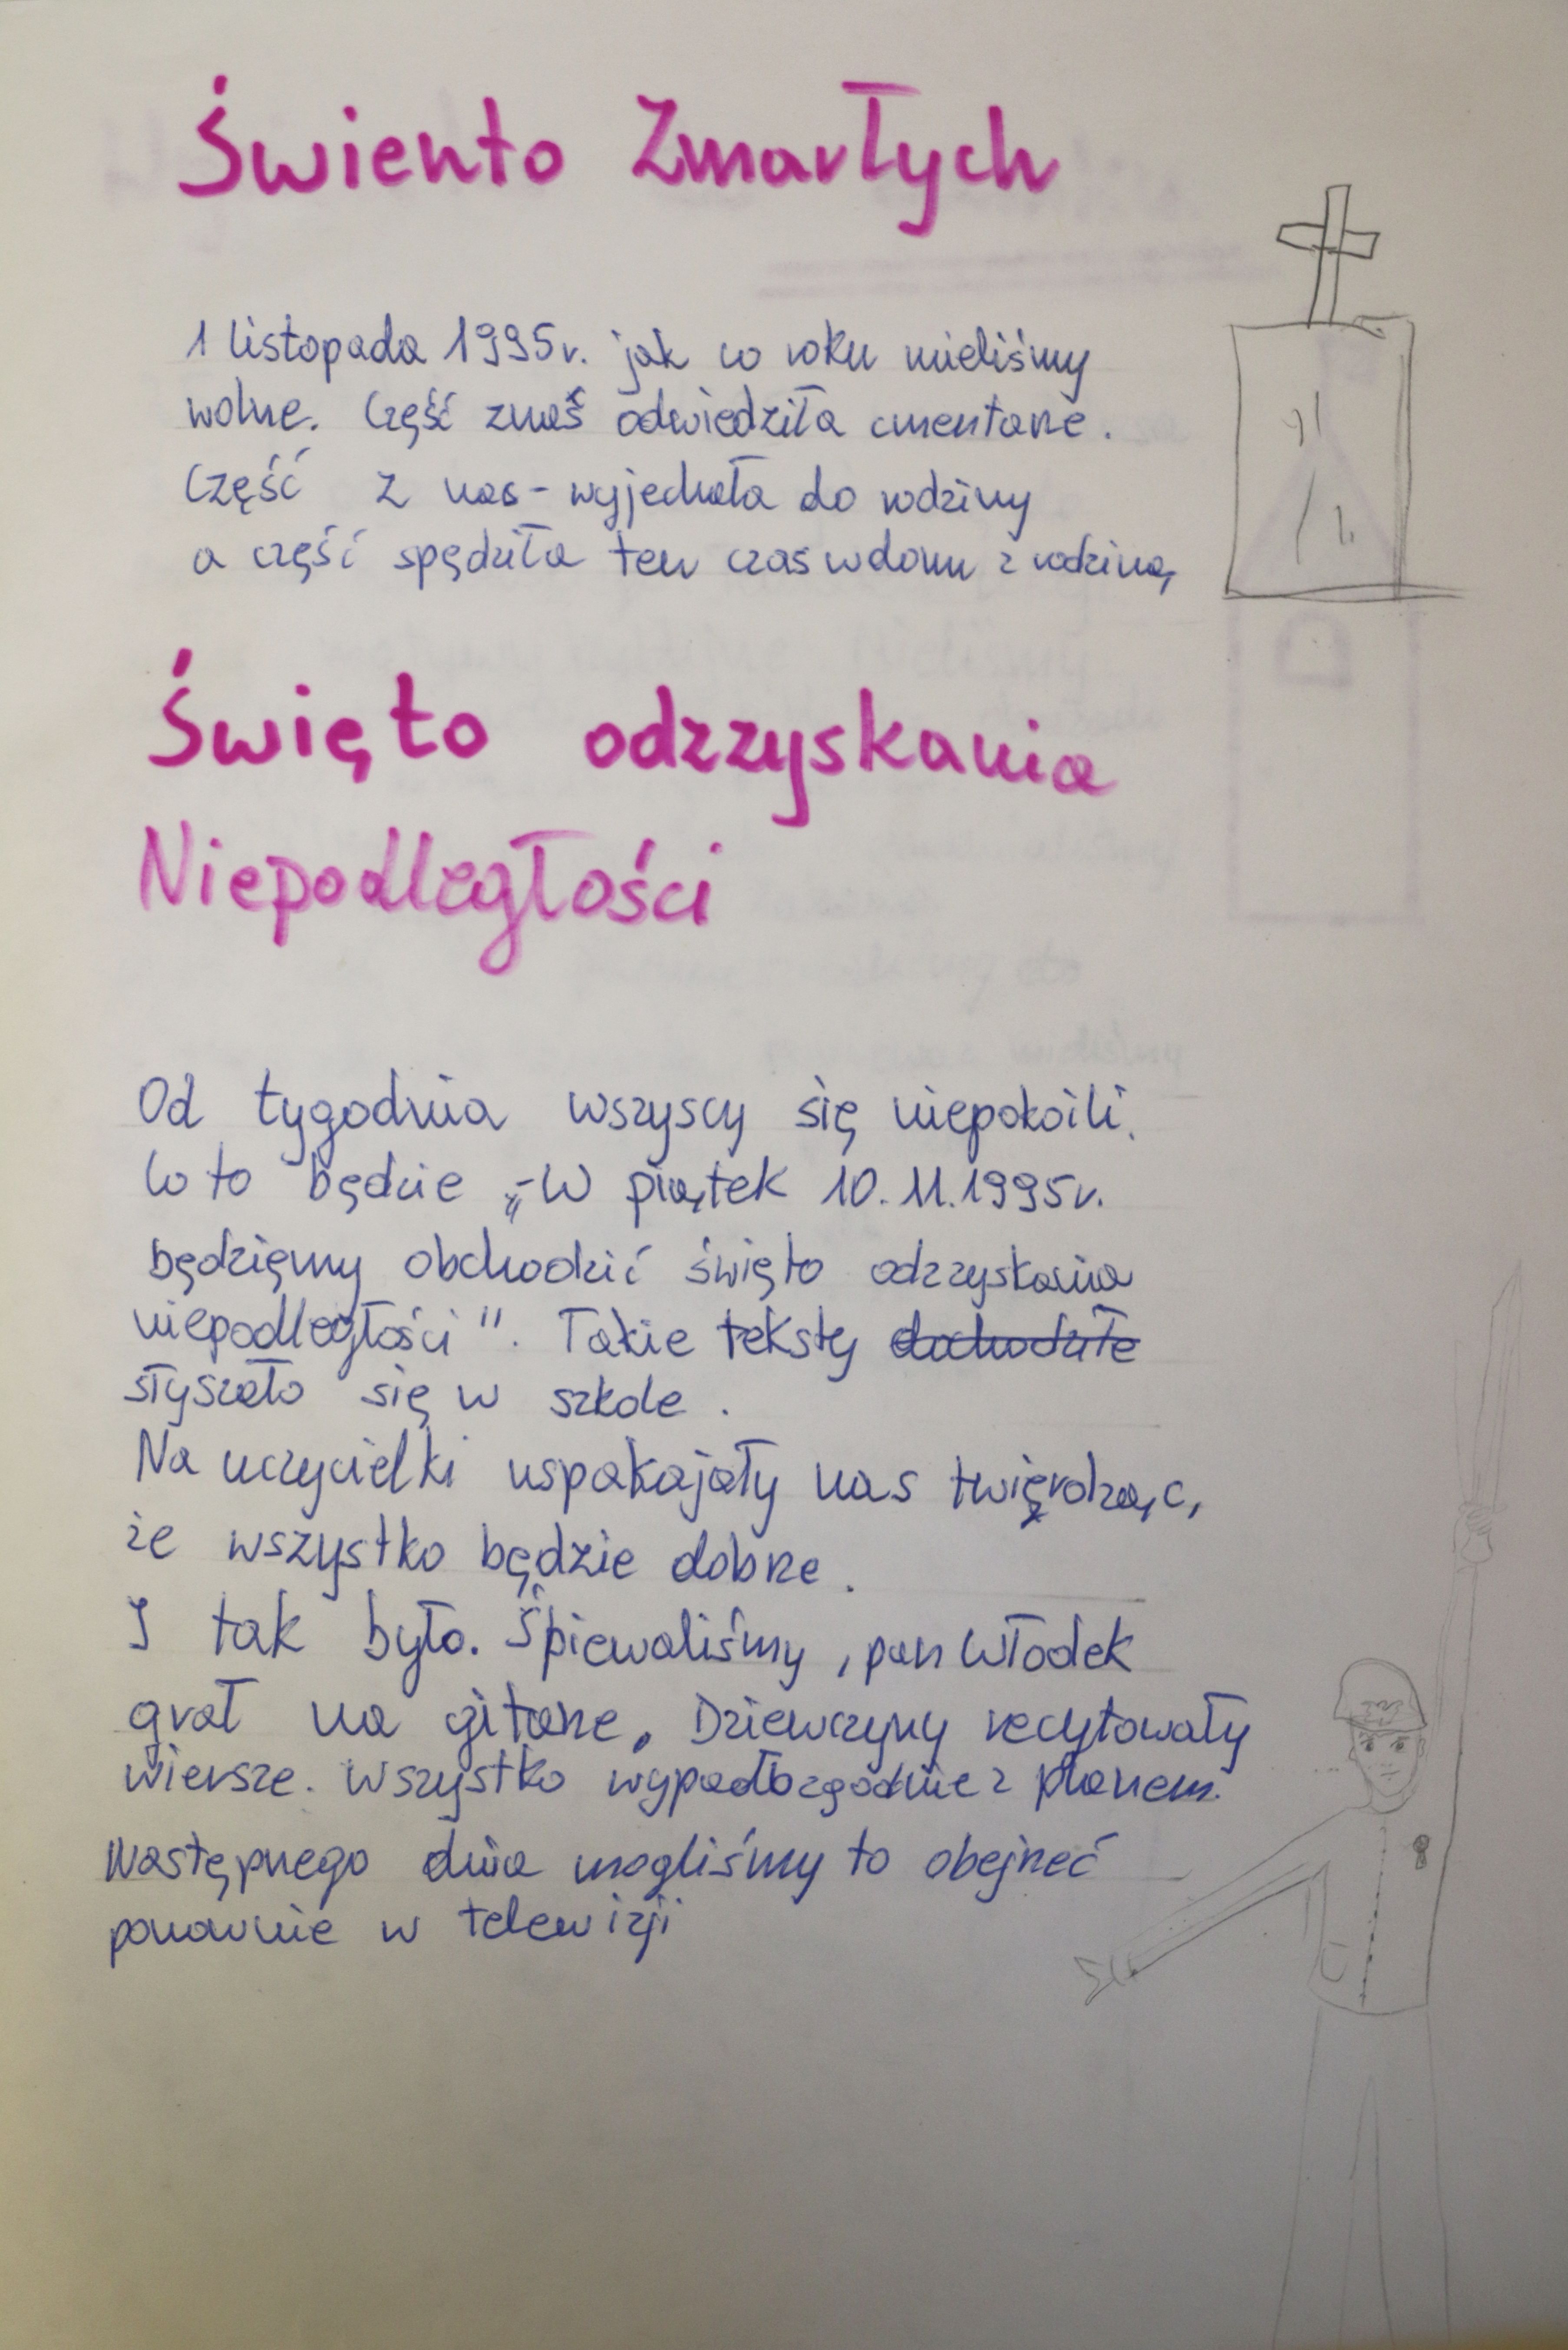 Świento Zmarłych
1 listopada 1995r. jak co roku mieliśmy
wolne. Część znaś odwiedziła cmentarze.
Część z nas - wyjechała do rodziny
a część spędziła ten czas w domu z rodziną
Święto odzzyskania
Niepodległości
Od tygodnia wszyscy się niepokoili.
Co to będzie „-W piątek 10.11.1995r.
będzięmy obchodzić święto odzzyskania
niepodległości". Takie teksty dochodziłe
słyszało się w szkole.
Na uczycielki uspakajały nas twięrdząc,
że wszystko będzie dobrze.
I tak było. Śpiewaliśmy, pan Włodek
grał na gitarze. Dziewczyny recytowały
wiersze. Wszystko wypadło zgodnie z planem.
Następnego dnia mogliśmy to obejrzeć
ponownie w telewizji